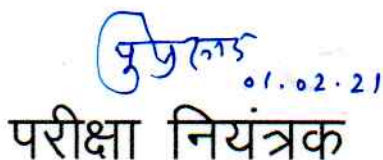 01.02.21
परीक्षा नियंत्रक